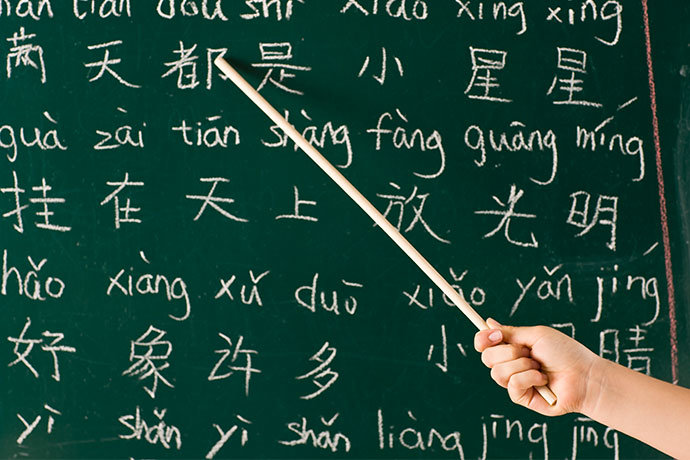 tiān dōu shì xiǎo xīng xing
满 天 都 是 小 星 星
guà zài tiān shàng fàng guāng míng
挂 在 天 上 放 光 明
hǎo xiàng xǔ duō xiǎo yǎn jīng
好 象 许 多 小 睛
yì shǎn yì shǎn liàng jīng jīng